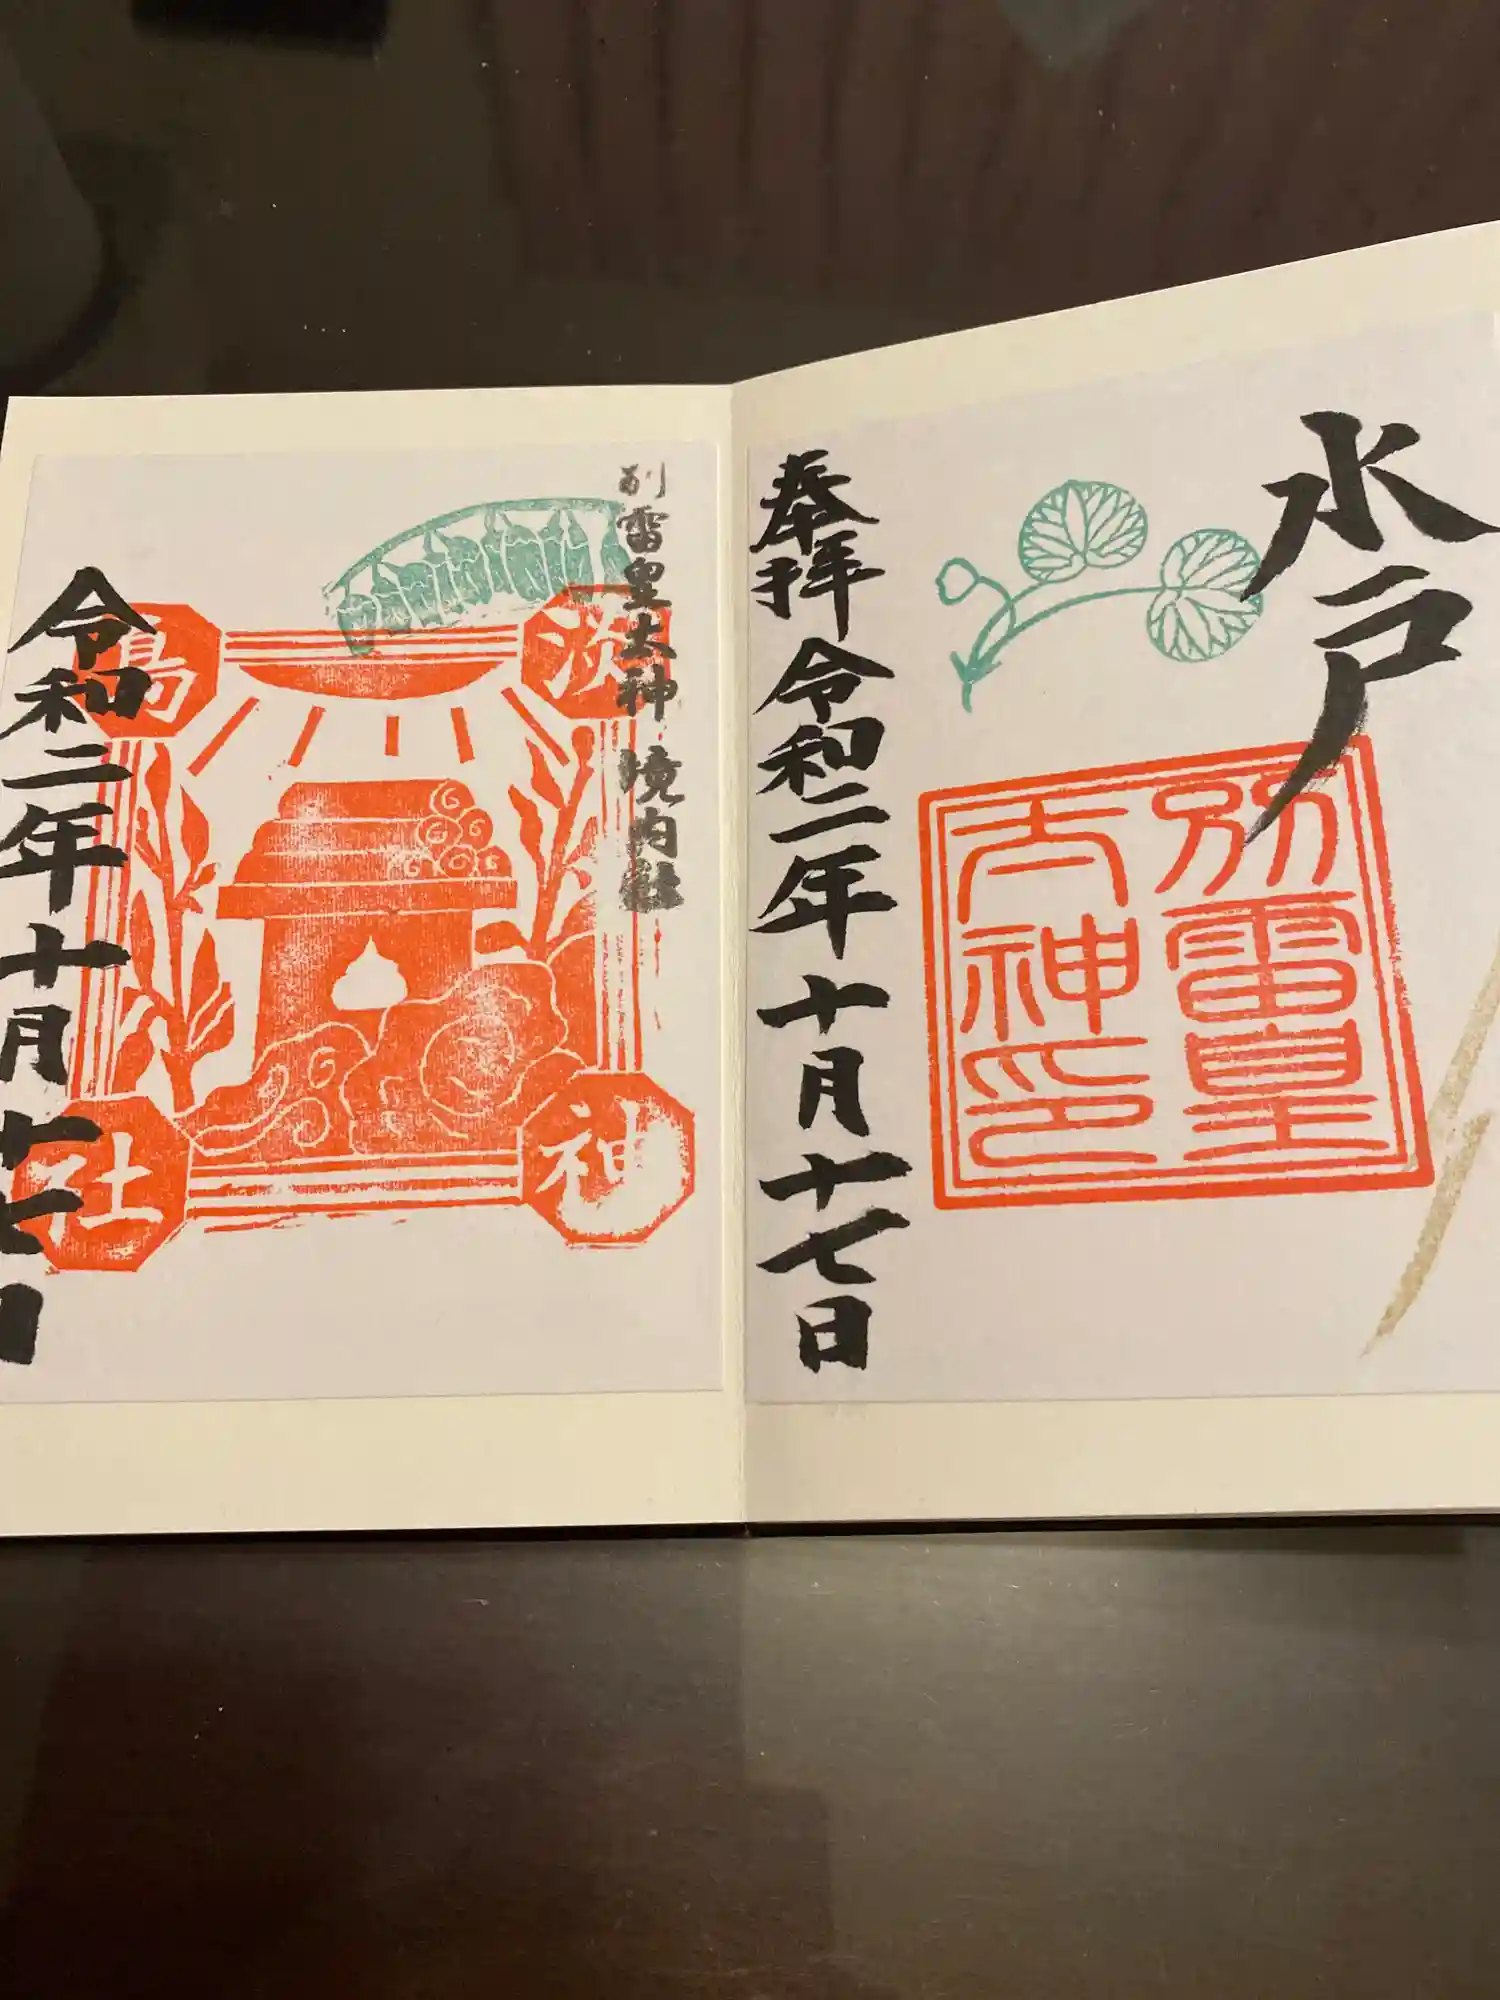 水戸
別雷皇
太神印
奉拝 令和二年十月十七日
別雷皇太神 境内社
淡島
神社
令和二年十月十七日